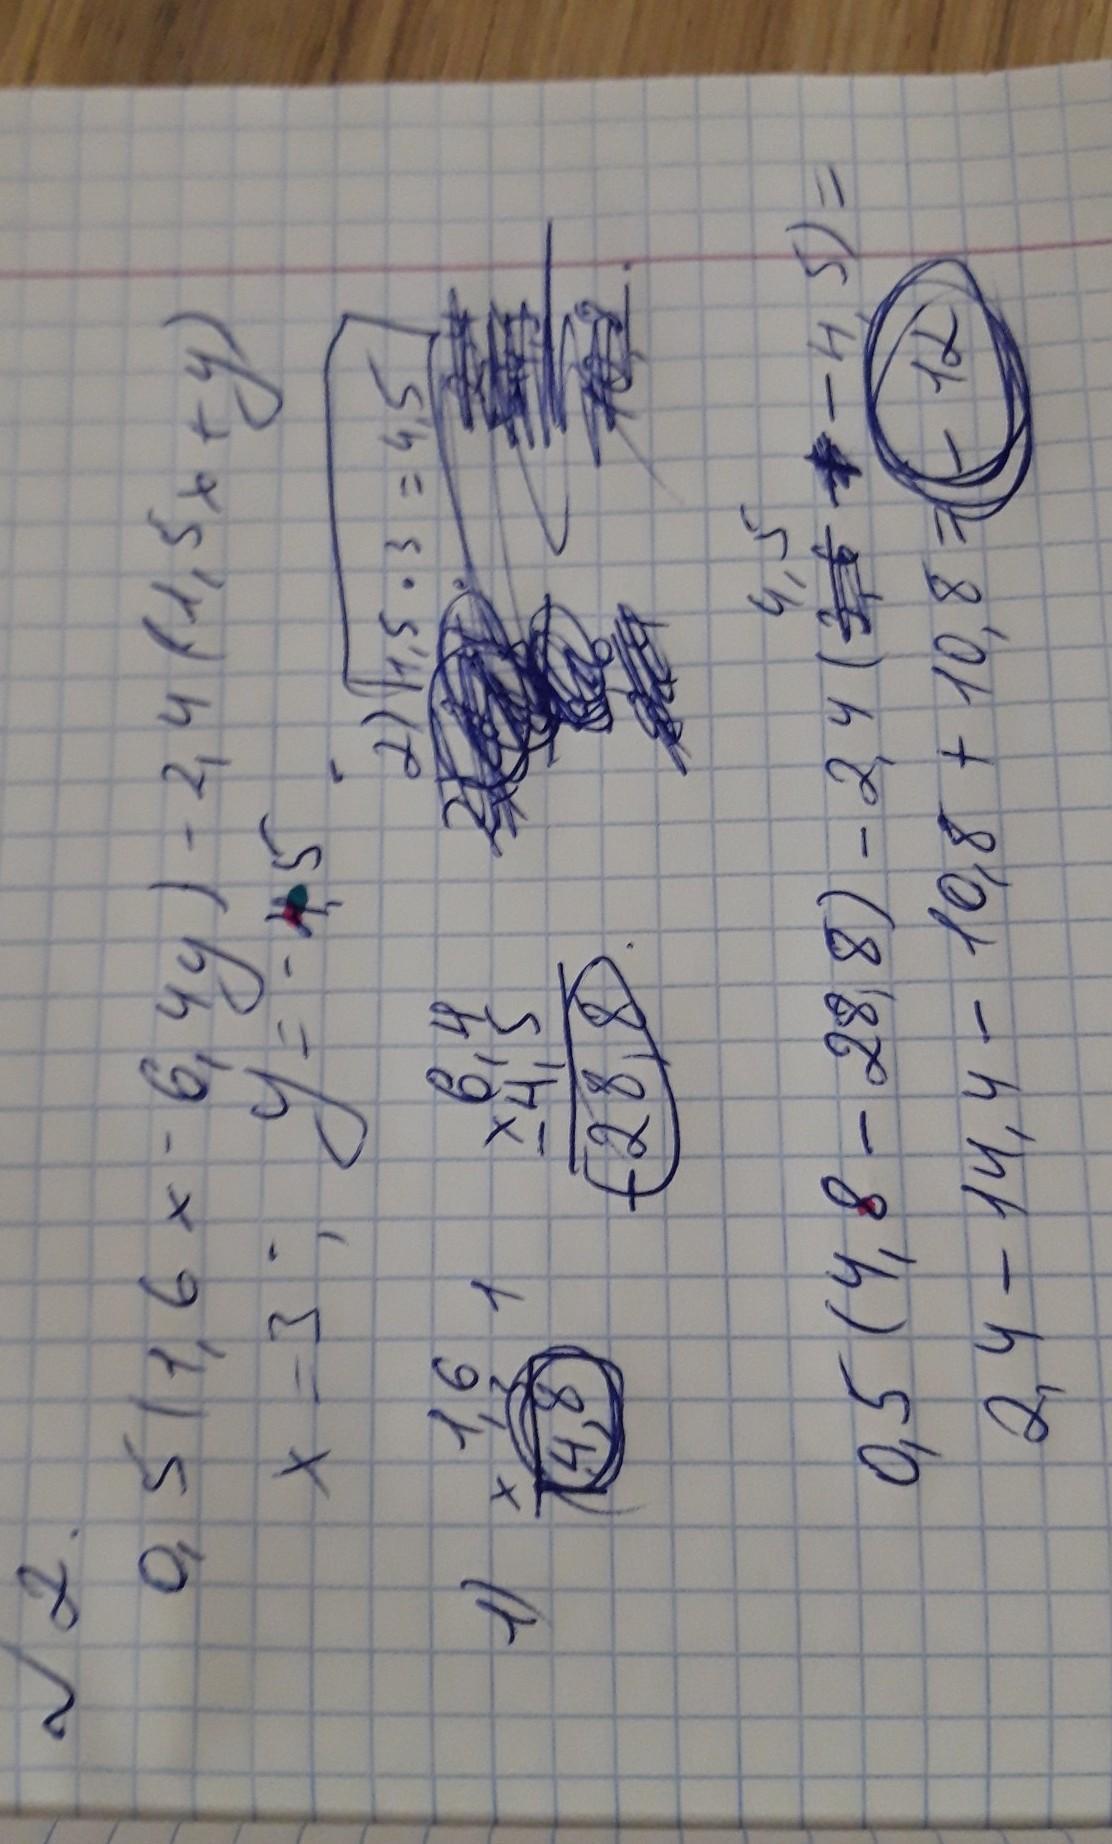 √ 2.
0,5(1,6x - 6,4y) - 2,4(1,5x + y)
x = 3; y = -4,5
1) × 1,6
4,8
6,4
× -4,5
-28,8
2) 1,5 · 3 = 4,5
4,5
0,5(4,8 - 28,8) - 2,4( - 4,5) =
2,4 - 14,4 - 10,8 + 10,8 = -12